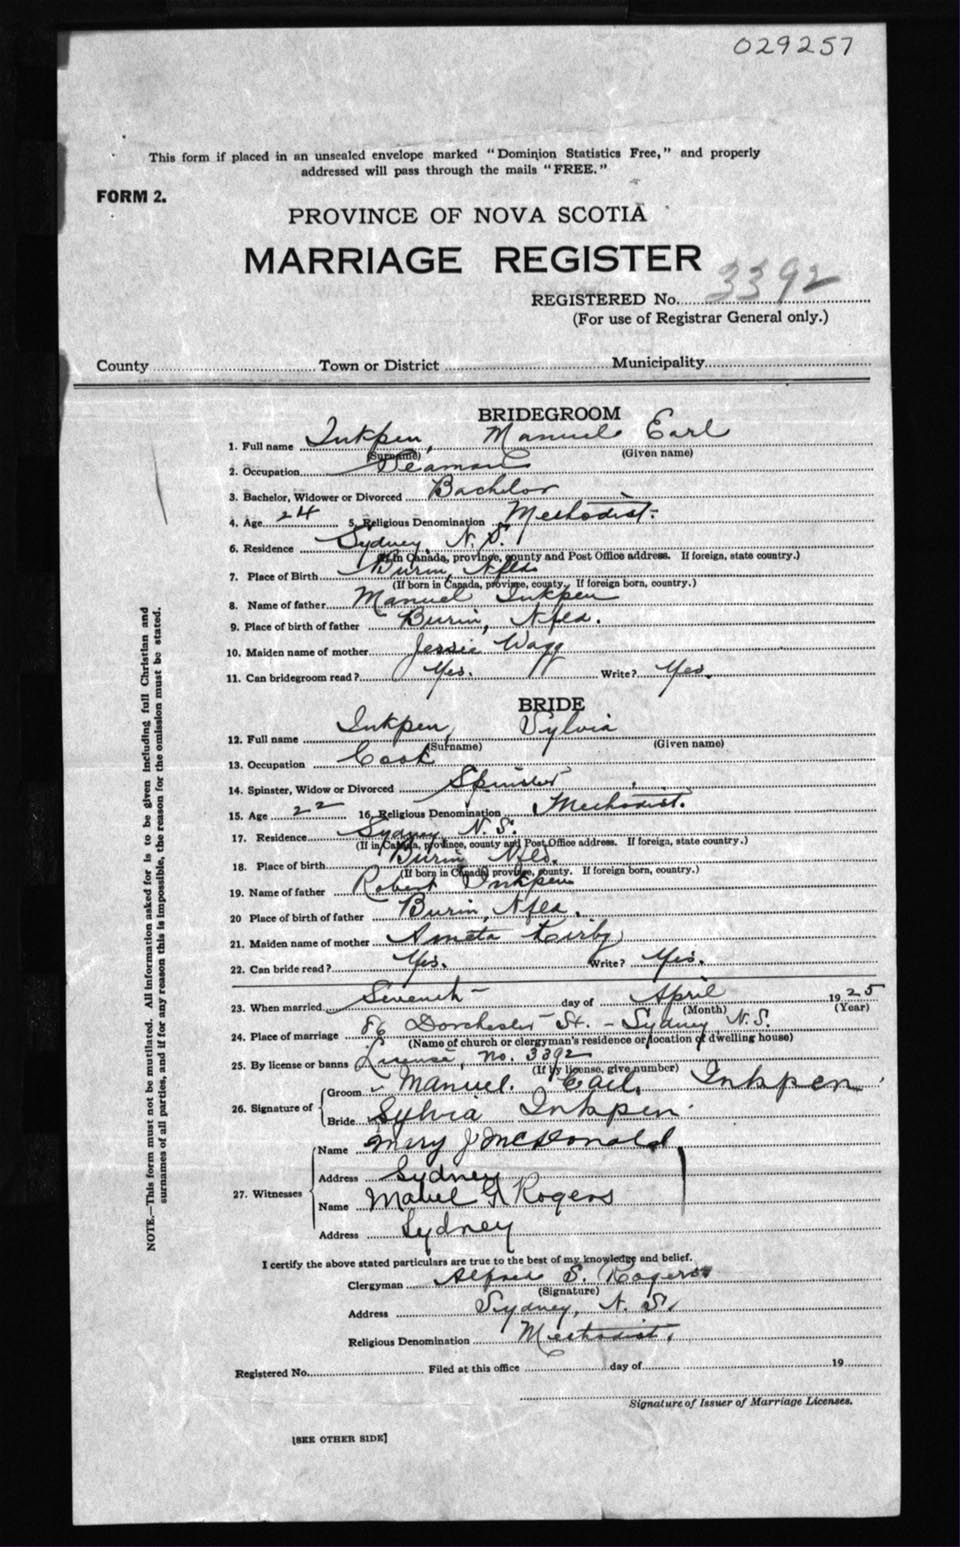 029257
This form if placed in an unsealed envelope marked "Dominion Statistics Free," and properly
addressed will pass through the mails "FREE."
FORM 2.
PROVINCE OF NOVA SCOTIA
MARRIAGE REGISTER
REGISTERED No. 3392
(For use of Registrar General only.)
County Town or District Municipality
BRIDEGROOM
1. Full name Inkpen, Manuel Earl
(Surname) (Given name)
2. Occupation Seaman
3. Bachelor, Widower or Divorced Bachelor
4. Age 24 5. Religious Denomination Methodist.
6. Residence Sydney N. S.
(If in Canada, province, county and Post Office address. If foreign, state country.)
7. Place of Birth Burin, Nfld
(If born in Canada, province, county. If foreign born, country.)
8. Name of father Manuel Inkpen
9. Place of birth of father Burin, Nfld.
10. Maiden name of mother Jessie Wagg
11. Can bridegroom read? Yes. Write? Yes.
BRIDE
12. Full name Inkpen, Sylvia
(Surname) (Given name)
13. Occupation Cook
14. Spinster, Widow or Divorced Spinster
15. Age 22 16. Religious Denomination Methodist.
17. Residence Sydney N. S.
(If in Canada, province, county and Post Office address. If foreign, state country.)
18. Place of birth Burin Nfld.
(If born in Canada, province, county. If foreign born, country.)
19. Name of father Robert Inkpen
20 Place of birth of father Burin, Nfld.
21. Maiden name of mother Kirby
22. Can bride read? Yes. Write? Yes.
23. When married Seventh day of April 1925
(Month) (Year)
24. Place of marriage 86 Dorchester St. - Sydney N. S.
(Name of church or clergyman's residence or location of dwelling house)
25. By license or banns License, no. 3392
(If by license, give number)
26. Signature of
Groom Manuel. Earl. Inkpen
Bride Sylvia Inkpen
27. Witnesses
Name Mary J McDonald
Address Sydney
Name Mabel G. Rogers
Address Sydney
I certify the above stated particulars are true to the best of my knowledge and belief.
Clergyman Alfred S. Rogers
(Signature)
Address Sydney, N. S.
Religious Denomination Methodist.
Registered No. Filed at this office day of 19
Signature of Issuer of Marriage Licenses.
[SEE OTHER SIDE]
NOTE.—This form must not be mutilated. All information asked for is to be given including full Christian and
surnames of all parties, and if for any reason this is impossible, the reason for the omission must be stated.